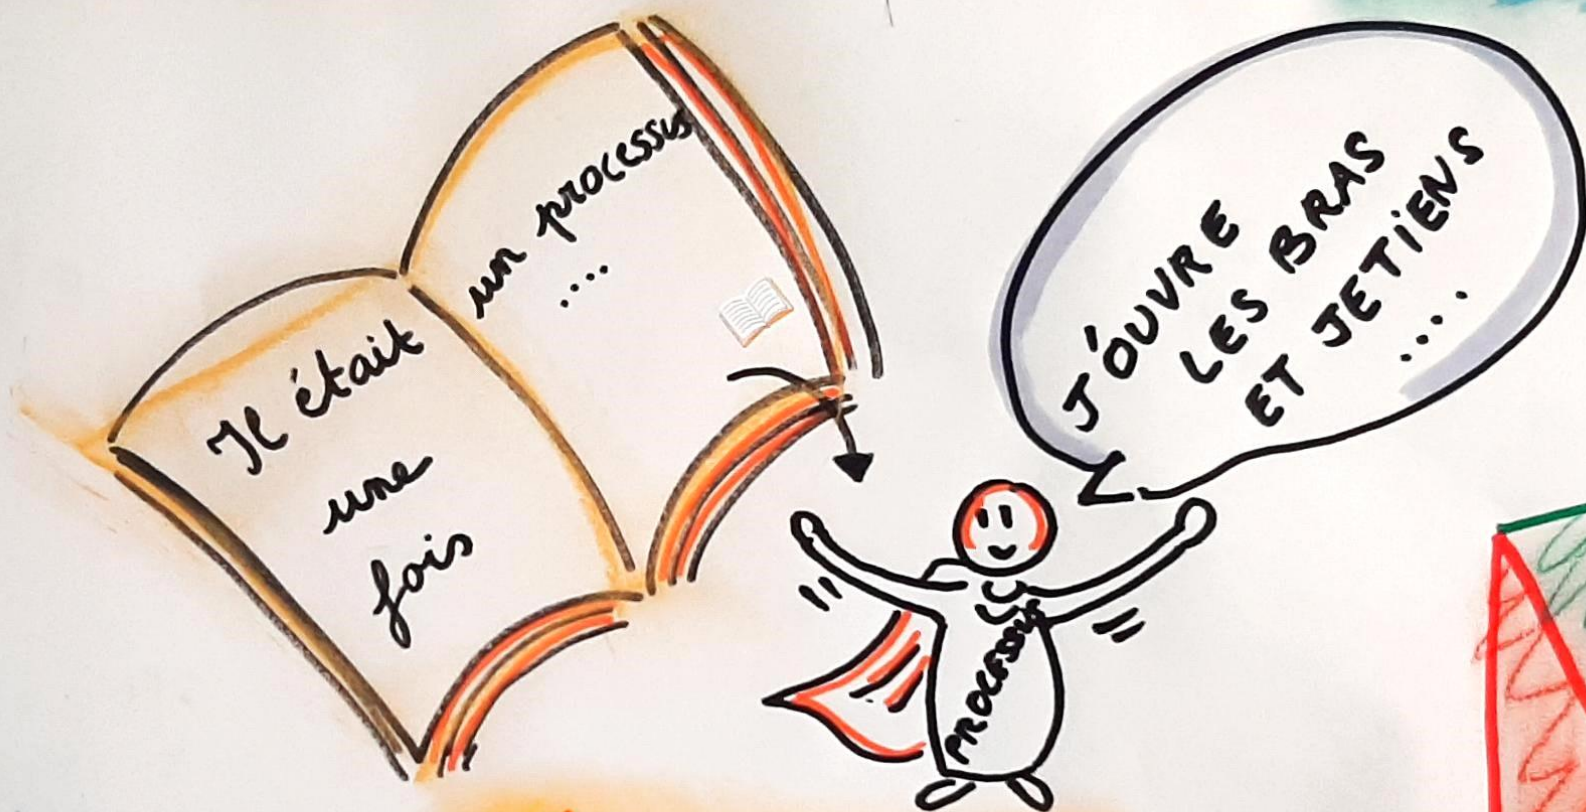 Il était
une
fois
un processus
....
J'OUVRE
LES BRAS
ET JETIENS
....
PROCESSUS